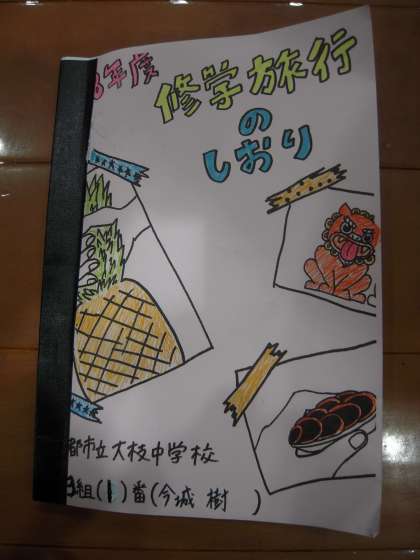 8年度
修学旅行
の
しおり
都市立大枝中学校
組(1)番(今城 樹 )